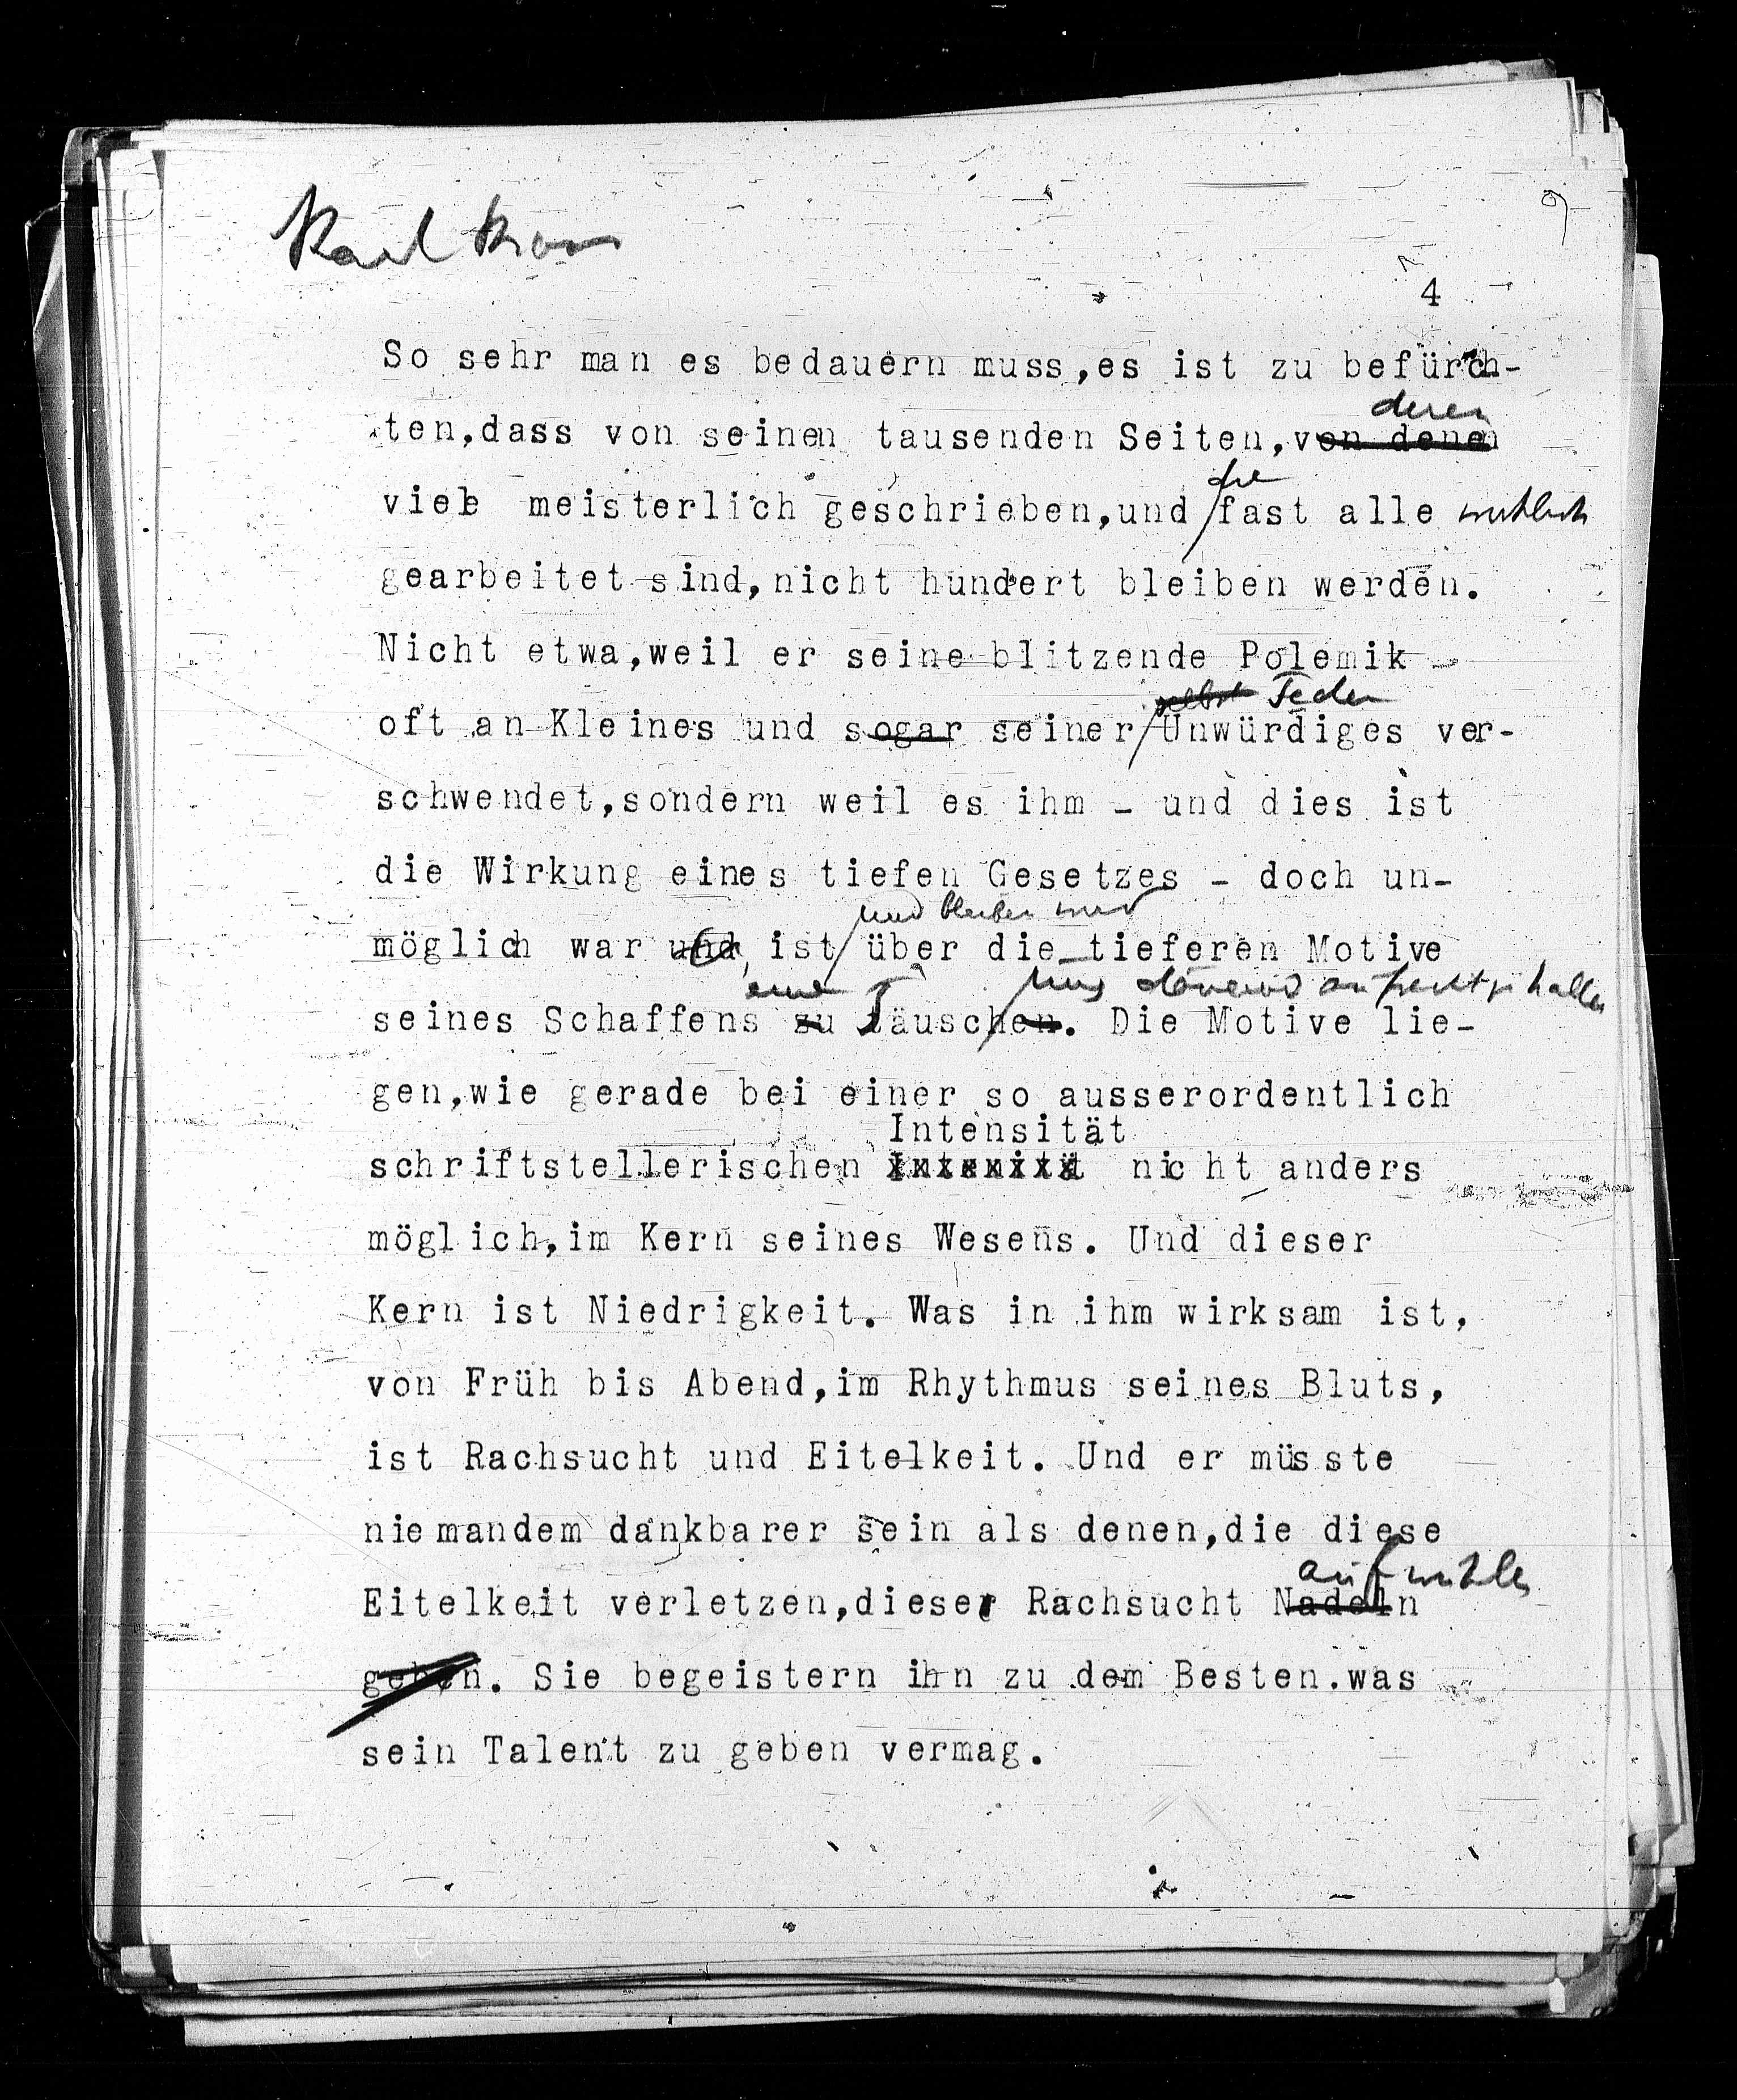 Karl Kraus
9
4
So sehr man es bedauern muss,es ist zu befürch-
deren
ten,dass von seinen tausenden Seiten,von denen
die
viele meisterlich geschrieben,und fast alle wirklich
gearbeitet sind,nicht hundert bleiben werden.
Nicht etwa,weil er seine blitzende Polemik
selbst Feder
oft an Kleines und sogar seiner Unwürdiges ver-
schwendet,sondern weil es ihm - und dies ist
die Wirkung eines tiefen Gesetzes - doch un-
und bleiben wird
möglich war und, ist über die tieferen Motive
eine T uns dauernd aufrecht zu halten
seines Schaffens zu täuschen. Die Motive lie-
gen,wie gerade bei einer so ausserordentlich
Intensität
schriftstellerischen Intenität nicht anders
möglich,im Kern seines Wesens. Und dieser
Kern ist Niedrigkeit. Was in ihm wirksam ist,
von Früh bis Abend,im Rhythmus seines Bluts,
ist Rachsucht und Eitelkeit. Und er müsste
niemandem dankbarer sein als denen,die diese
aufwühlen
Eitelkeit verletzen,dieser Rachsucht Nadeln
geben. Sie begeistern ihn zu dem Besten.was
sein Talent zu geben vermag.